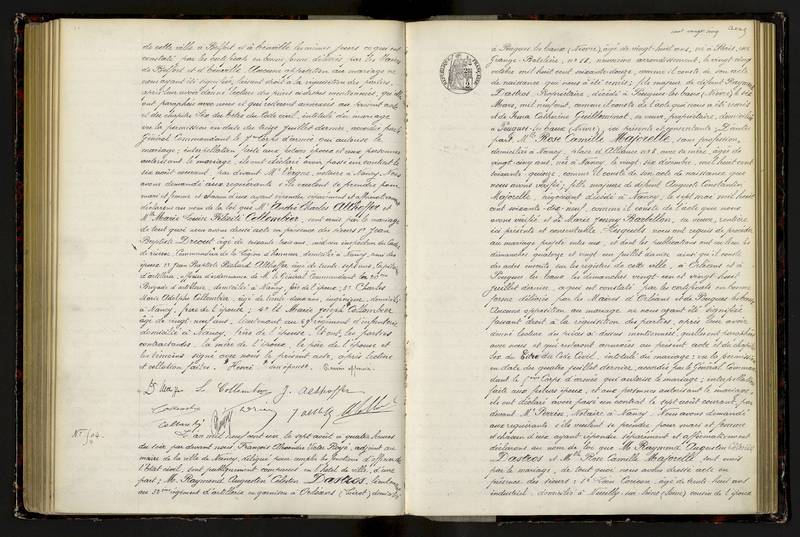 de cette ville à Belfort et à
constaté par les certificats en bonne forme délivrés par les Maires
de Belfort et Aucune opposition au mariage ne
nous ayant été signifiée, faisant droit à la réquisition des parties,
après leur avoir donné lecture des pièces ci-dessus mentionnées, qu'elles
ont paraphées avec nous et qui resteront annexées au présent acte
et du chapitre six du titre du Code civil, intitulé du mariage
vu la permission en date du treize juillet dernier, accordée par le
Général Commandant le Corps d'armée qui autorise le
mariage; interpellation faite aux futurs époux et aux personnes
autorisant le mariage, ils ont déclaré avoir passé un contrat le
six août courant, par devant Me Vergne, notaire à Nancy. Nous
avons demandé aux requérants s'ils veulent se prendre pour
mari et femme et chacun d'eux ayant répondu séparément et affirmativement
déclarons au nom de la loi que Mr André Charles Althoffer et
Mlle Marie Louise Collombier, sont unis par le mariage
de tout quoi nous avons dressé acte en présence des sieurs 1° Jean
Baptiste âgé de soixante
Commandeur de la Légion d'honneur, domicilié à Nancy,
2° Jean Baptiste Richard Althoffer âgé de trente sept ans, Capitaine
d'artillerie, officier d'ordonnance de M. le Général Commandant la
Brigade d'artillerie, domicilié à Nancy, frère de l'époux; 3° Charles
Marie Adolphe Collombier, âgé de trente deux ans, ingénieur, domicilié
à Nancy, frère de l'épouse; 4° et Marie Joseph Collombier
âgé de vingt neuf ans, lieutenant au 69e régiment d'infanterie,
domicilié à Nancy, frère de l'épouse. Et ont, les parties
contractantes, la mère de l'époux, le père de l'épouse et
les témoins signé avec nous le présent acte, après lecture
et collation faites.
L. Collombier J. Althoffer
Collombier
Collombier
No 704.
L'an mil neuf cent un, le sept août à quatre heures
du soir par devant nous, François Alexandre Victor adjoint au
maire de la ville de Nancy, délégué pour remplir les fonctions d'officier de
l'Etat civil, sont publiquement comparus en l'hôtel de ville, d'une
part: M. Raymond Augustin Célestin Dastros, lieutenant
au 32ème régiment d'artillerie en garnison à Orléans (Loiret) domicilié
cent vingt cinq
à Pougues les eaux (Nièvre), âgé de vingt huit ans, né à Paris, rue
Grange Batelière, no 18, neuvième arrondissement, le vingt cinq
octobre mil huit cent soixante douze, comme il conste de son acte
de naissance qui nous a été remis; fils majeur de défunt
Dastros, Propriétaire, décédé à Pougues les eaux (Nièvre) le six
Mars, mil neuf cent, comme il conste de l'acte qui nous a été remis
et de Anna Catherine Guilleminal, sa veuve, propriétaire, domiciliée
à Pougues les eaux (Nièvre), ici présente et consentante; D'autre
part, Mlle Rose Camille Majorelle, sans profession,
domiciliée à Nancy, place d'Alliance no 8, avec sa mère, âgée de
vingt cinq ans, née à Nancy, le vingt six décembre, mil huit cent
soixante quinze, comme il conste de son acte de naissance que
nous avons vérifié; fille majeure de défunt Auguste Constantin
Majorelle, négociant décédé à Nancy, le sept mai mil huit
cent soixante dix neuf, comme il conste de l'acte que nous
avons vérifié et de Marie Jenny Barbillon, sa veuve, rentière
ici présente et consentante. Lesquels nous ont requis de procéder
au mariage projeté entre eux, et dont les publications ont eu lieu les
dimanches quatorze et vingt un juillet dernier ainsi qu'il conste
des actes inscrits sur les registres de cette ville, à Orléans et à
Pougues les eaux les dimanches vingt un et vingt huit
juillet dernier, ce qui est constaté par les certificats en bonne
forme délivrés par les Maires d'Orléans et de Pougues les eaux.
Aucune opposition au mariage ne nous ayant été signifiée
faisant droit à la réquisition des parties, après leur avoir
donné lecture des pièces ci-dessus mentionnées, qu'elles ont paraphées
avec nous et qui resteront annexées au présent acte et du chapitre
six du titre du Code Civil, intitulé du mariage; vu la permission
en date du quatre juillet dernier, accordée par le Général Comman-
dant le 5ème Corps d'armée qui autorise le mariage; interpellation
faite aux futurs époux, et aux personnes autorisant le mariage,
ils ont déclaré avoir passé un contrat le sept août courant, par
devant Me Perrin, Notaire à Nancy. Nous avons demandé
aux requérants s'ils veulent se prendre, pour mari et femme
et chacun d'eux ayant répondu séparément et affirmativement
déclarons au nom de la loi, que M. Raymond Augustin Célestin
Dastros et Mlle Rose Camille Majorelle, sont unis
par le mariage, de tout quoi nous avons dressé acte en
présence des sieurs: 1° âgé de trente huit ans
industriel, domicilié à Neuilly sur Seine (Seine) cousin de l'époux